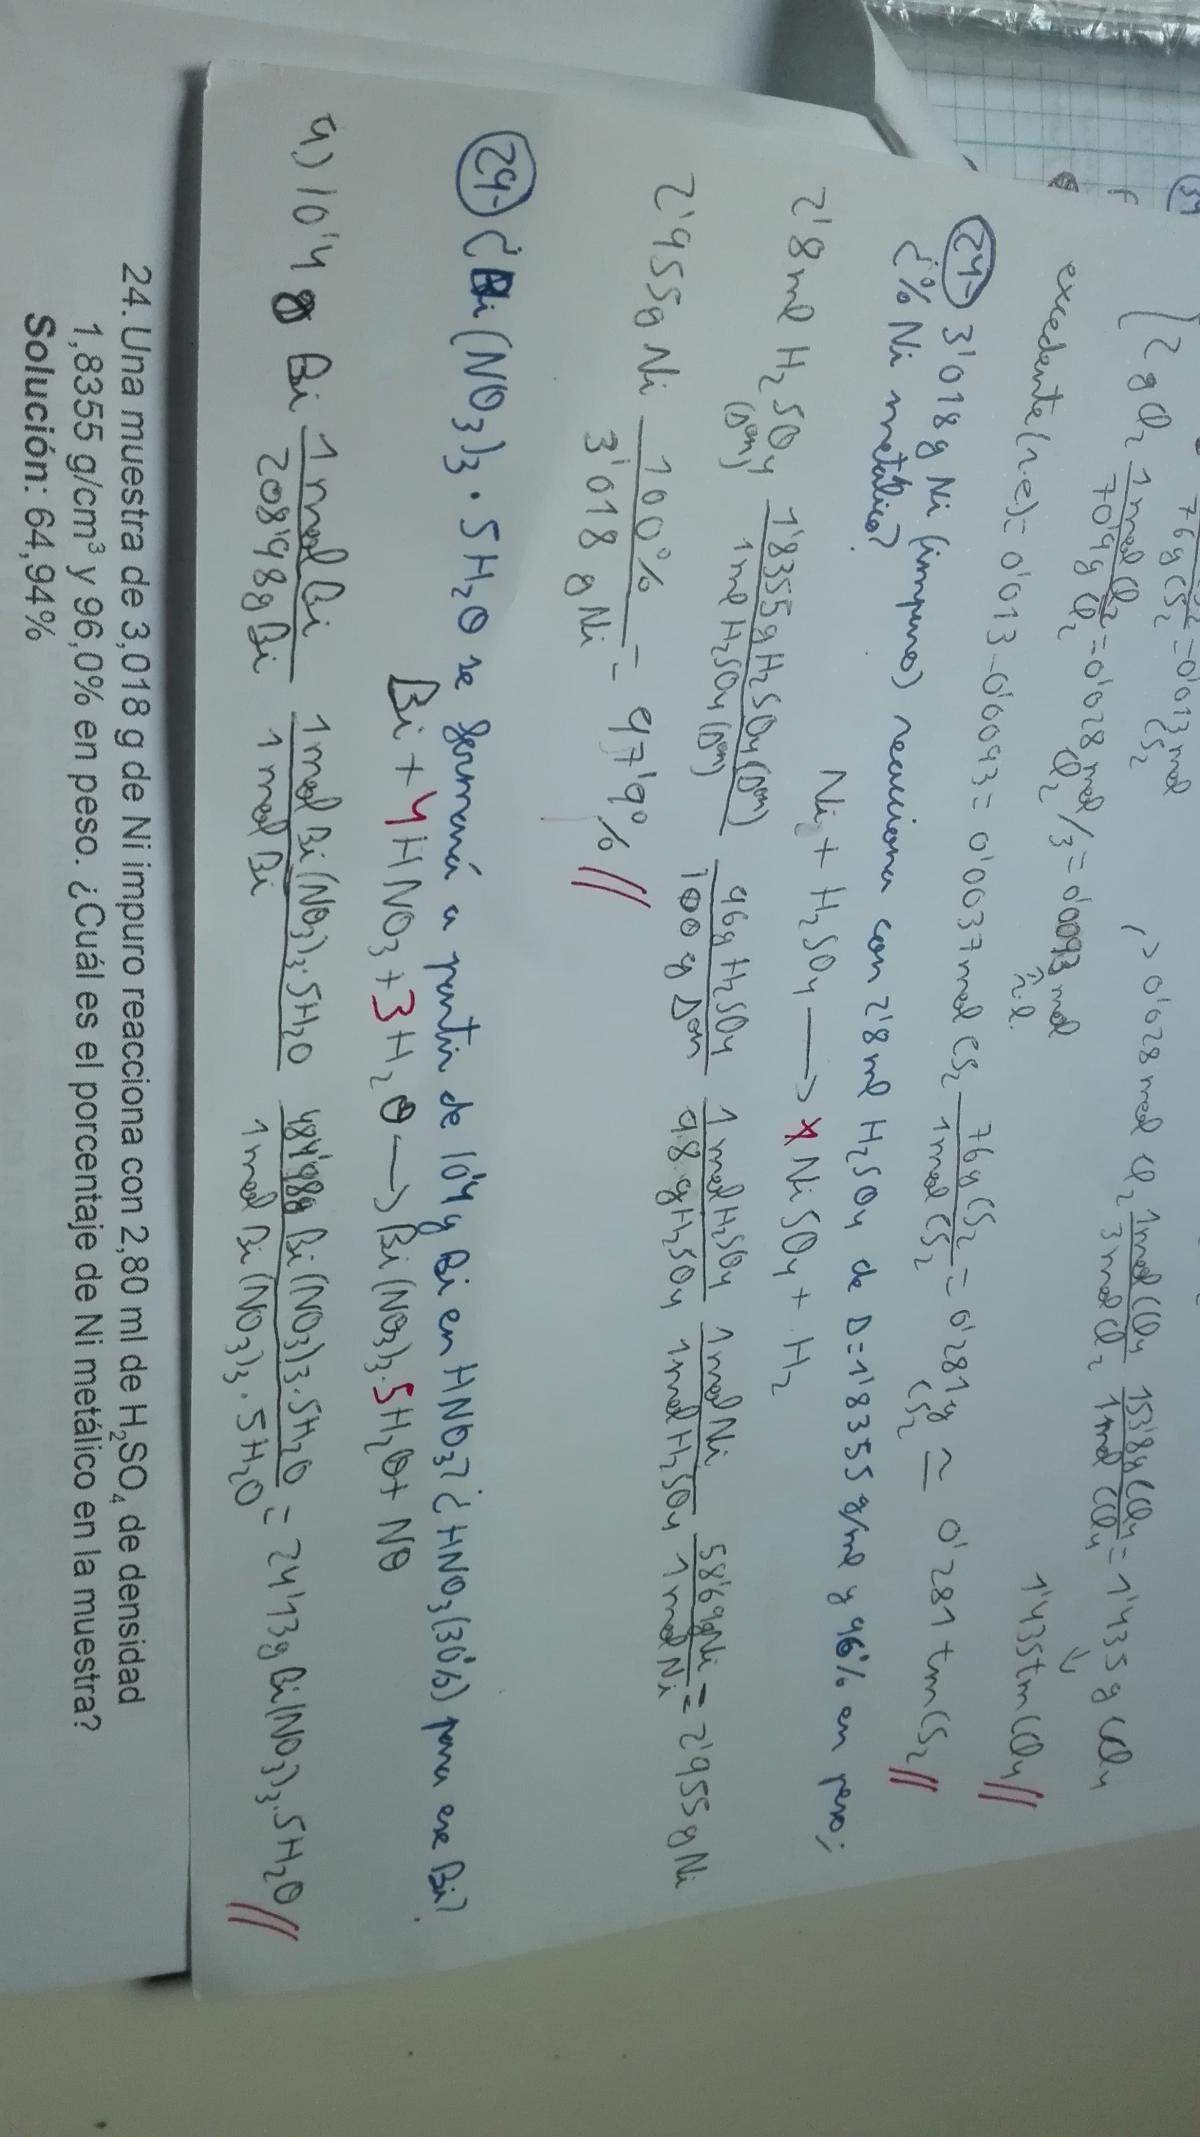 76g CS2 = 0'013 mol
CS2
2 g Cl2 1 mol Cl2 / 70'9 g Cl2 = 0'028 mol Cl2 /3 = 0'0093 mol
→ 0'028 mol Cl2 1 mol CCl4 / 3 mol Cl2 153'8g CCl4 / 1 mol CCl4 = 1'435 g CCl4
1'435 tm CCl4 //
excedente (r.e) = 0'013 - 0'0093 = 0'0037 mol CS2 76g CS2 / 1 mol CS2 = 0'281 g CS2 ≃ 0'281 tm CS2 //
24- 3'018 g Ni (impuro) reacciona con 2'8 ml H2SO4 de D=1'8355 g/ml y 96% en peso;
¿% Ni metálico?
Ni + H2SO4 → NiSO4 + H2
2'8 ml H2SO4 (Don) 1'8355g H2SO4 (Don) / 1 ml H2SO4 (Don) 96g H2SO4 / 100 g Don 1 mol H2SO4 / 98 g H2SO4 1 mol Ni / 1 mol H2SO4 58'69g Ni / 1 mol Ni = 2'955 g Ni
2'955g Ni 100% / 3'018 g Ni = 97'9% //
29- ¿Bi(NO3)3 · 5H2O se formará a partir de 10'4g Bi en HNO3? ¿HNO3 (30%) para ese Bi?
Bi + 4HNO3 + 3H2O → Bi(NO3)3·5H2O + NO
a) 10'4 g Bi 1 mol Bi / 208'98g Bi 1 mol Bi(NO3)3·5H2O / 1 mol Bi 484'98g Bi(NO3)3·5H2O / 1 mol Bi(NO3)3·5H2O = 24'13g Bi(NO3)3·5H2O //
24. Una muestra de 3,018 g de Ni impuro reacciona con 2,80 ml de H2SO4 de densidad
1,8355 g/cm³ y 96,0% en peso. ¿Cuál es el porcentaje de Ni metálico en la muestra?
Solución: 64,94%